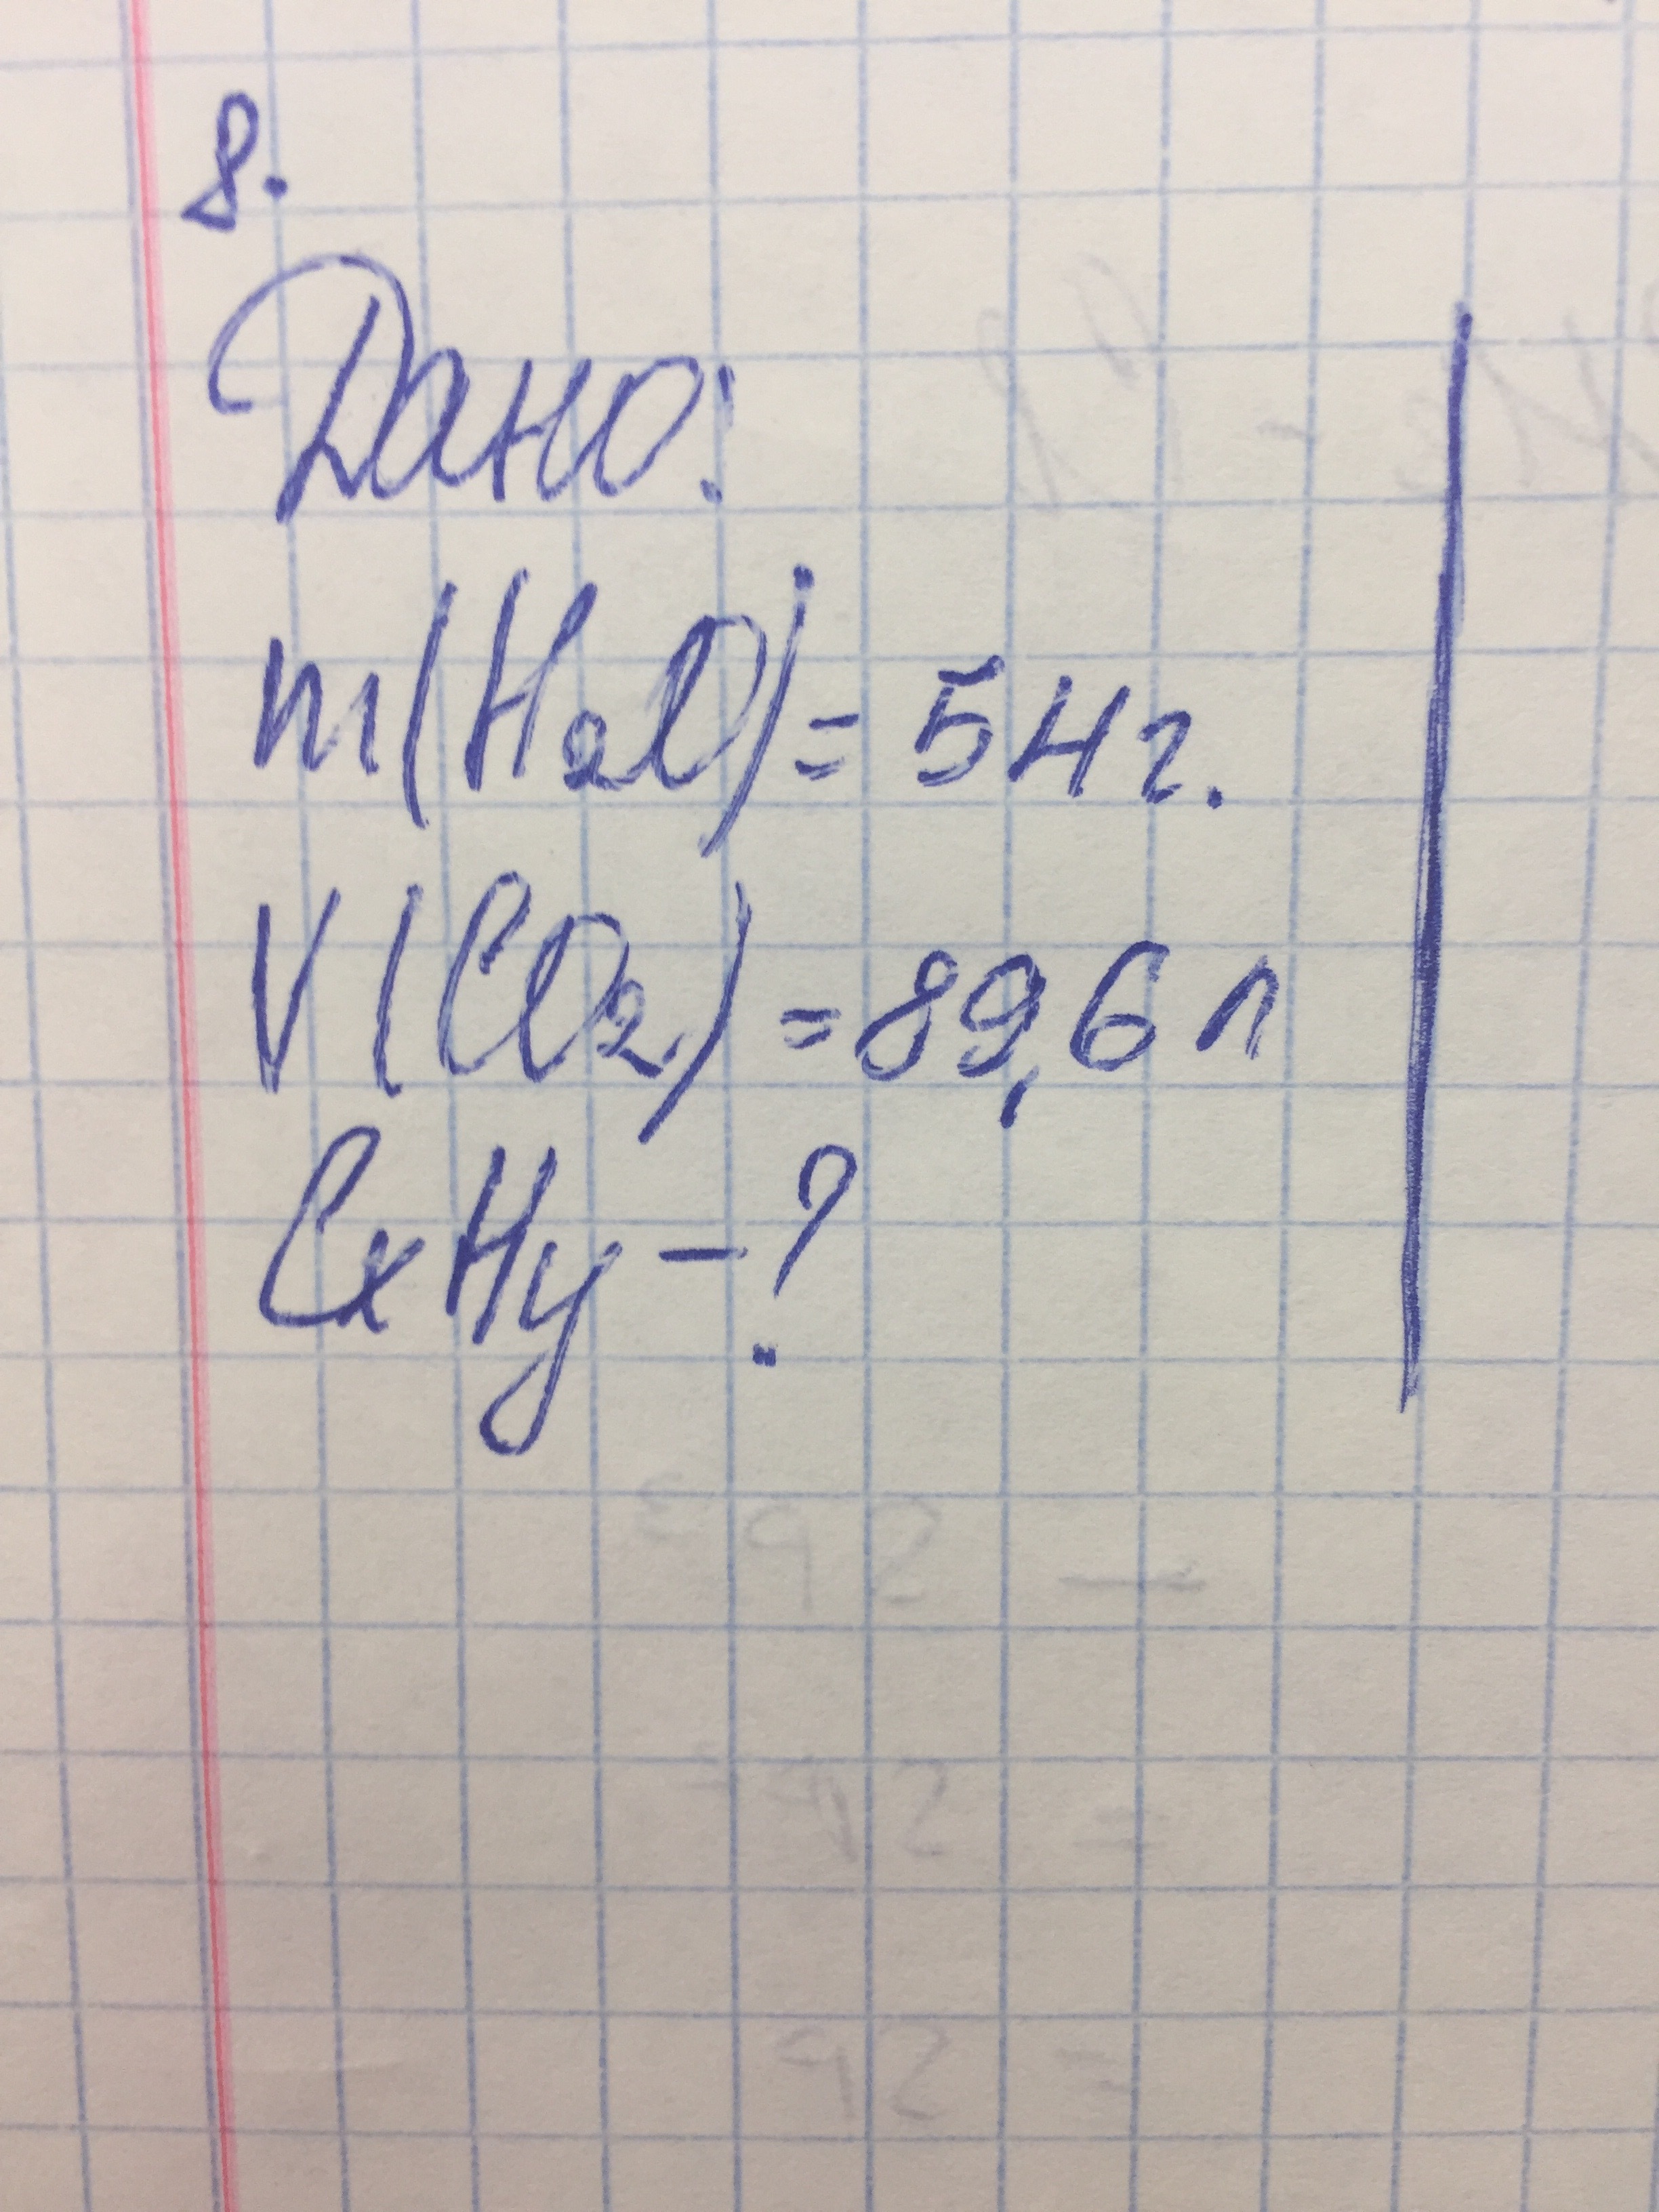 8.
Дано:
m(H₂O) = 54 г.
V(CO₂) = 89,6 л
CxHy - ?